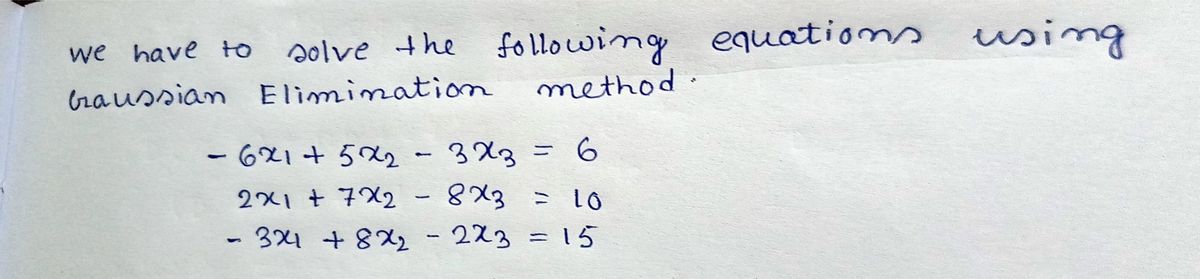 we have to solve the following equations using
Gaussian Elimination method.
- 6x1 + 5x2 - 3x3 = 6
2x1 + 7x2 - 8x3 = 10
- 3x1 + 8x2 - 2x3 = 15